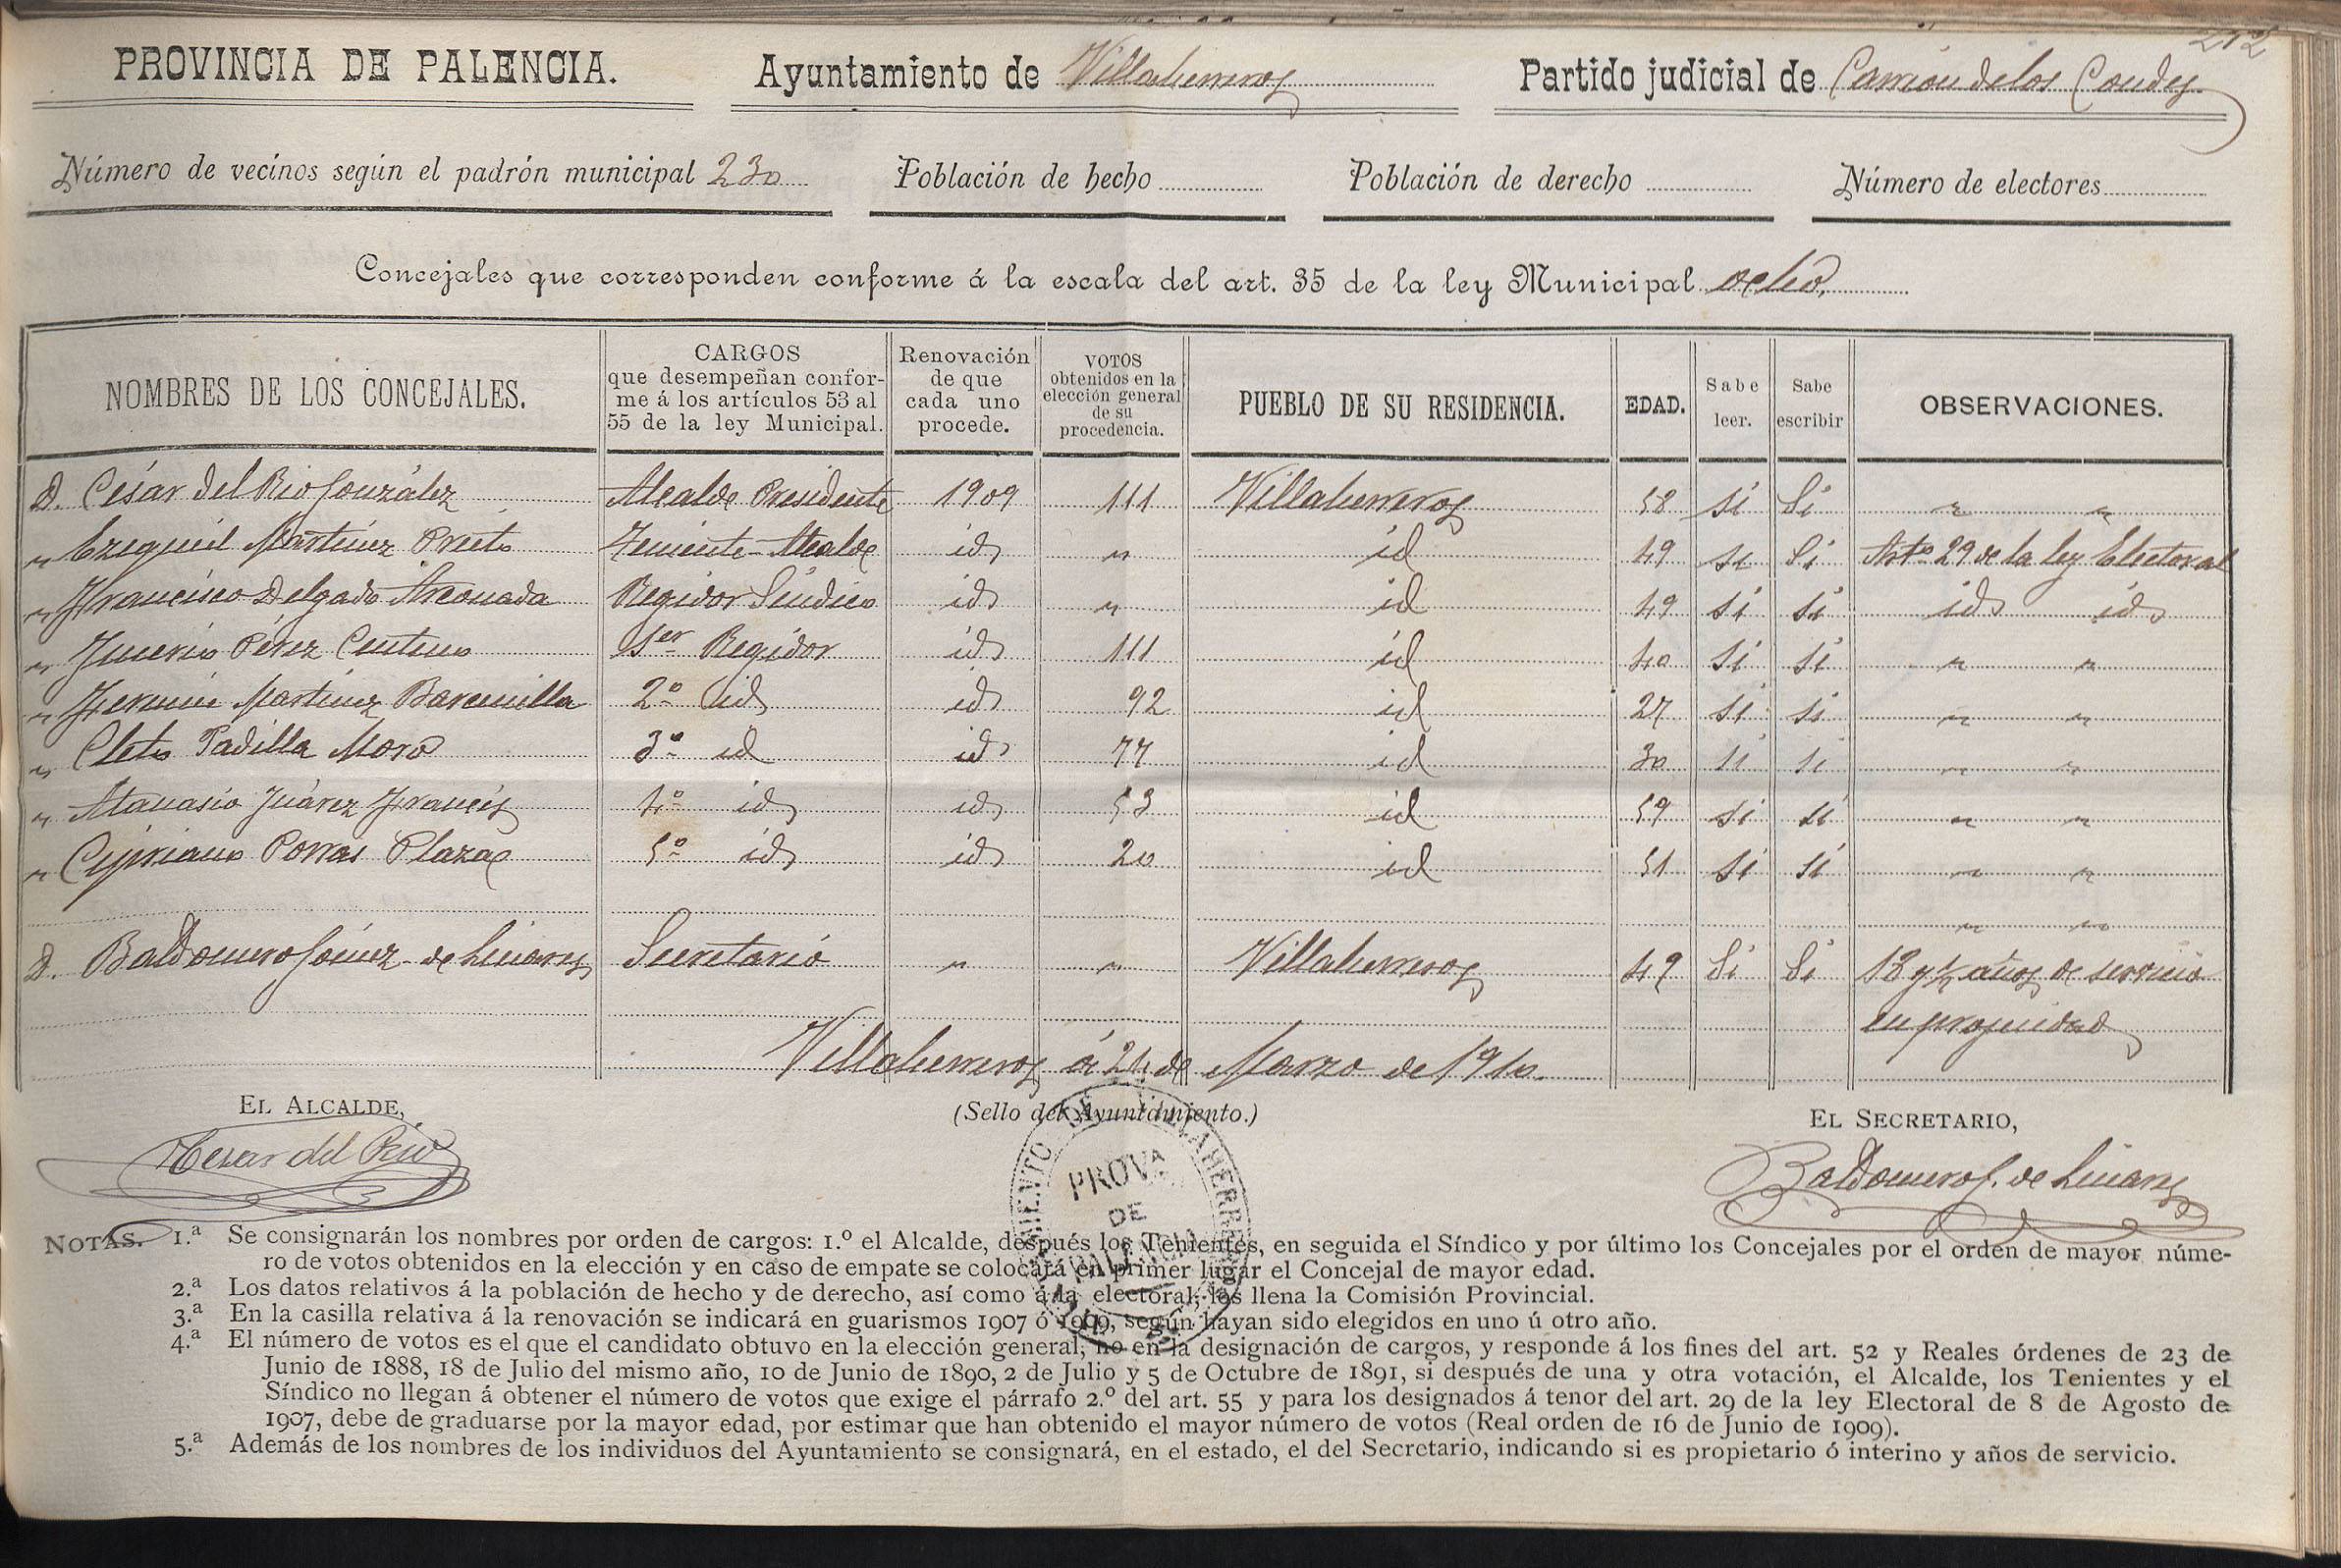 212
PROVINCIA DE PALENCIA. Ayuntamiento de Villaherreros Partido judicial de Carrión de los Condes
Número de vecinos según el padrón municipal 230 Población de hecho Población de derecho Número de electores
Concejales que corresponden conforme á la escala del art. 35 de la ley Municipal ocho.
NOMBRES DE LOS CONCEJALES. CARGOS que desempeñan confor- me á los artículos 53 al 55 de la ley Municipal. Renovación de que cada uno procede. VOTOS obtenidos en la elección general de su procedencia. PUEBLO DE SU RESIDENCIA. EDAD. Sabe leer. Sabe escribir OBSERVACIONES.
D. César del Rio González Alcalde Presidente 1909 111 Villaherreros 58 si Si " "
" Ezequiel Martínez Prieto Teniente-Alcalde id " id 49 si Si Artº 29 de la ley Electoral
" Francisco Delgado Arconada Regidor Síndico id " id 49 si si id id
" Pérez Centeno 1er Regidor id 111 id 40 si si " "
" Fermín Martínez Barcenilla 2º id id 92 id 27 si si " "
" Cleto Padilla Moro 3º id id 77 id 30 si si " "
" Atanasio Juárez Francés 4º id id 53 id 59 si si " "
" Cipriano Porras Plaza 5º id id 20 id 51 si si " "
" "
D. Baldomero Gómez de Linares Secretario " " Villaherreros 49 Si Si 18 y ½ años de servicio
en propiedad
Villaherreros á 24 de Marzo de 1910.
EL ALCALDE, (Sello del Ayuntamiento.) EL SECRETARIO,
Cesar del Rio Baldomero G. de Linares
PROVA DE
NOTAS. 1.ª Se consignarán los nombres por orden de cargos: 1.º el Alcalde, después los Tenientes, en seguida el Síndico y por último los Concejales por el orden de mayor núme-
ro de votos obtenidos en la elección y en caso de empate se colocará en primer lugar el Concejal de mayor edad.
2.ª Los datos relativos á la población de hecho y de derecho, así como á la electoral, los llena la Comisión Provincial.
3.ª En la casilla relativa á la renovación se indicará en guarismos 1907 ó 1909, según hayan sido elegidos en uno ú otro año.
4.ª El número de votos es el que el candidato obtuvo en la elección general, no en la designación de cargos, y responde á los fines del art. 52 y Reales órdenes de 23 de
Junio de 1888, 18 de Julio del mismo año, 10 de Junio de 1890, 2 de Julio y 5 de Octubre de 1891, si después de una y otra votación, el Alcalde, los Tenientes y el
Síndico no llegan á obtener el número de votos que exige el párrafo 2.º del art. 55 y para los designados á tenor del art. 29 de la ley Electoral de 8 de Agosto de
1907, debe de graduarse por la mayor edad, por estimar que han obtenido el mayor número de votos (Real orden de 16 de Junio de 1909).
5.ª Además de los nombres de los individuos del Ayuntamiento se consignará, en el estado, el del Secretario, indicando si es propietario ó interino y años de servicio.